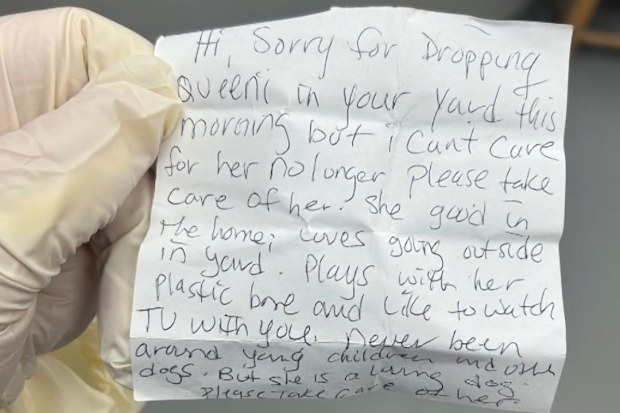 Hi, Sorry for Dropping
Queeni in your yard this
morning but i cant care
for her no longer please take
care of her. she good in
the home, loves going outside
in yard. Plays with her
plastic bone and like to watch
TV with you. Never been
around young children and other
dogs. But she is a loving dog.
Please take care of her.